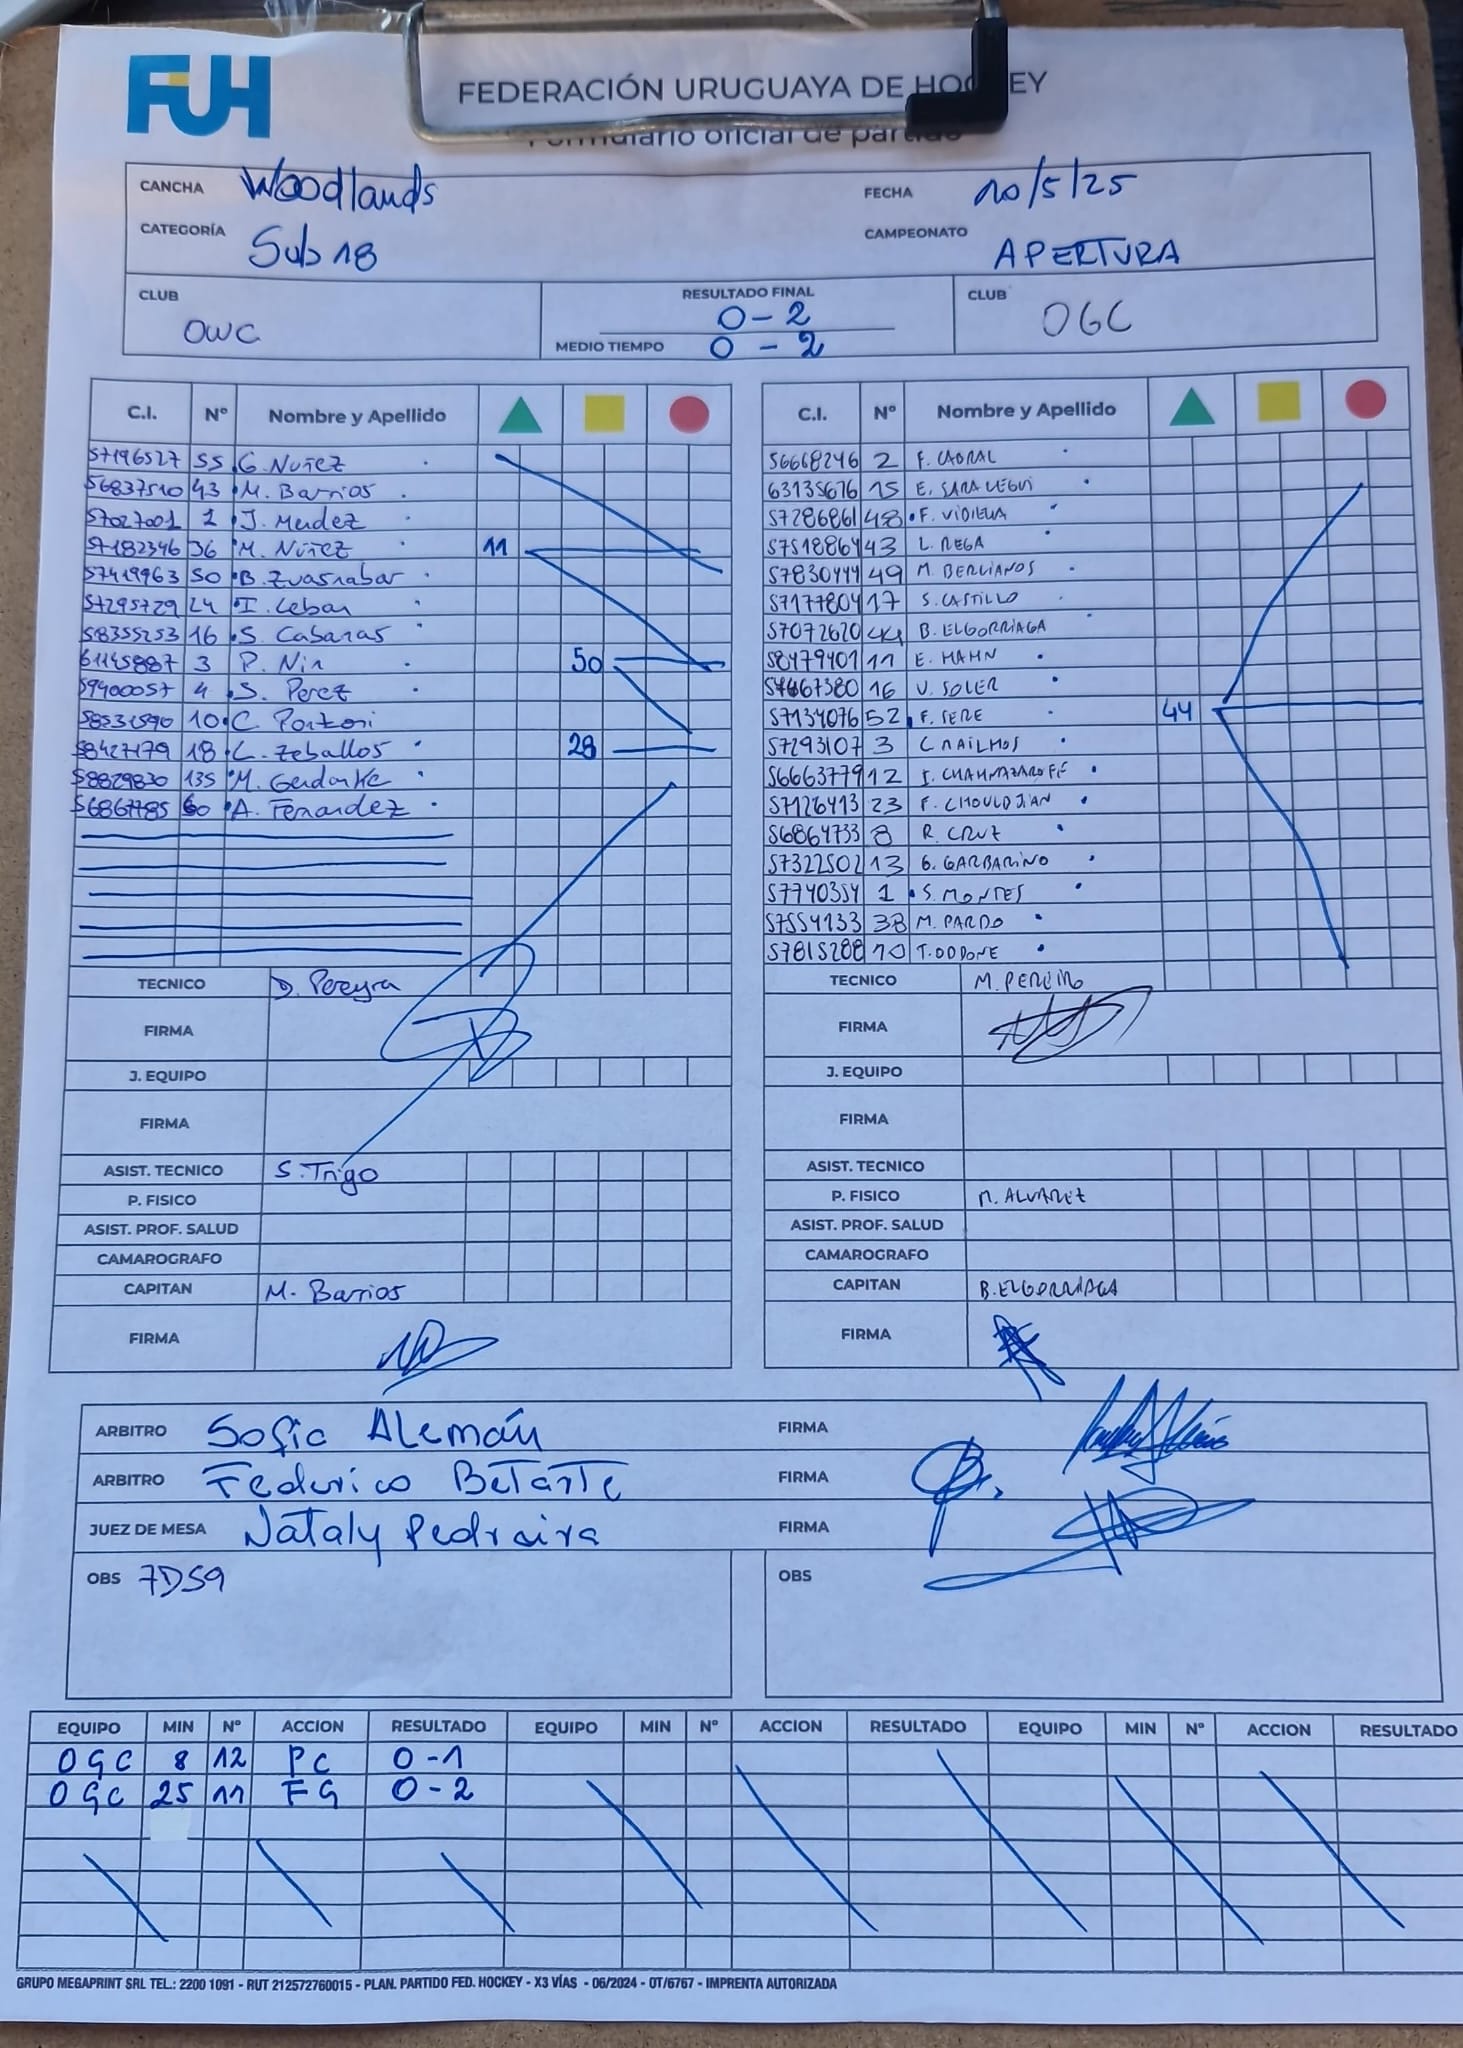 FUH
FEDERACIÓN URUGUAYA DE HOCKEY
Formulario oficial de partido
CANCHA Woodlands FECHA 10/5/25
CATEGORÍA Sub 18 CAMPEONATO APERTURA
CLUB OWC RESULTADO FINAL 0-2 CLUB OGC
MEDIO TIEMPO 0-2
C.I. Nº Nombre y Apellido
57196527 55 G. Nuñez
56837510 43 M. Barrios
57027001 2 J. Mendez
57182346 36 M. Nuñez 11
57419963 50 B. Zuasnabar
57295729 24 I. Ceban
58355253 16 S. Cabanas
61145887 3 P. Nin 50
59400057 4 S. Perez
58531590 10 C. Ponzoni
58427179 18 C. Zeballos 28
58829830 135 M. Gerdonke
56867785 60 A. Fernandez
TECNICO D. Pereyra
FIRMA
J. EQUIPO
FIRMA
ASIST. TECNICO S. Trigo
P. FISICO
ASIST. PROF. SALUD
CAMAROGRAFO
CAPITAN M. Barrios
FIRMA
C.I. Nº Nombre y Apellido
56668246 2 F. CABRAL
63135676 15 E. SARALEGUI
57286861 48 F. VIDIELLA
57518864 43 L. REGA
57830444 49 M. BERLIANOS
57177804 17 S. CASTILLO
57072620 44 B. ELGORRIAGA
58479401 11 E. HAHN
57667380 16 V. SOLER
57134076 52 F. SERE 44
57293107 3 C NAILHOS
56663779 12 I. CHAHNAZAROFF
57126413 23 F. CHOULDJIAN
56864733 8 R. CRUZ
57322502 13 G. GARBARINO
57740354 1 S. MONTES
57554133 38 M. PARDO
57815288 10 T. ODDONE
TECNICO M. PEREIRO
FIRMA
J. EQUIPO
FIRMA
ASIST. TECNICO
P. FISICO M. ALVAREZ
ASIST. PROF. SALUD
CAMAROGRAFO
CAPITAN B. ELGORRIAGA
FIRMA
ARBITRO Sofia Alemán FIRMA
ARBITRO Federico Betarte FIRMA
JUEZ DE MESA Nataly Pedraira FIRMA
OBS 7DS9 OBS
EQUIPO MIN Nº ACCION RESULTADO EQUIPO MIN Nº ACCION RESULTADO EQUIPO MIN Nº ACCION RESULTADO
OGC 8 12 PC 0-1
OGC 25 11 FG 0-2
GRUPO MEGAPRINT SRL TEL.: 2200 1091 - RUT 212572760015 - PLAN. PARTIDO FED. HOCKEY - X3 VÍAS - 06/2024 - OT/6767 - IMPRENTA AUTORIZADA